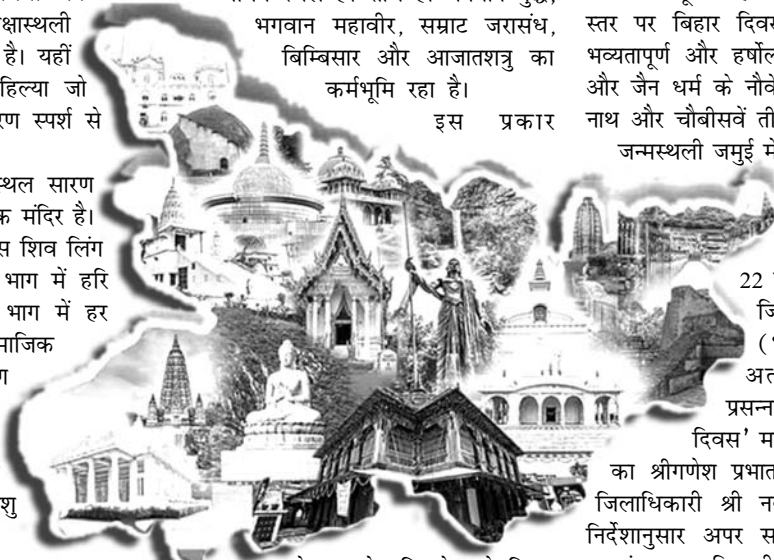 क्षास्थली
है। यहीं
हिल्या जो
रण स्पर्श से
स्थल सारण
क मंदिर है।
स शिव लिंग
भाग में हरि
भाग में हर
माजिक
ण
शु
भगवान महावीर, सम्राट जरासंध,
बिम्बिसार और आजातशत्रु का
कर्मभूमि रहा है।
इस प्रकार
स्तर पर बिहार दिवस
भव्यतापूर्ण और हर्षोल
और जैन धर्म के नौवे
नाथ और चौबीसवें ती
जन्मस्थली जमुई मे
22
जि
(
अत
प्रसन्न
दिवस’ म
का श्रीगणेश प्रभात
जिलाधिकारी श्री न
निर्देशानुसार अपर स